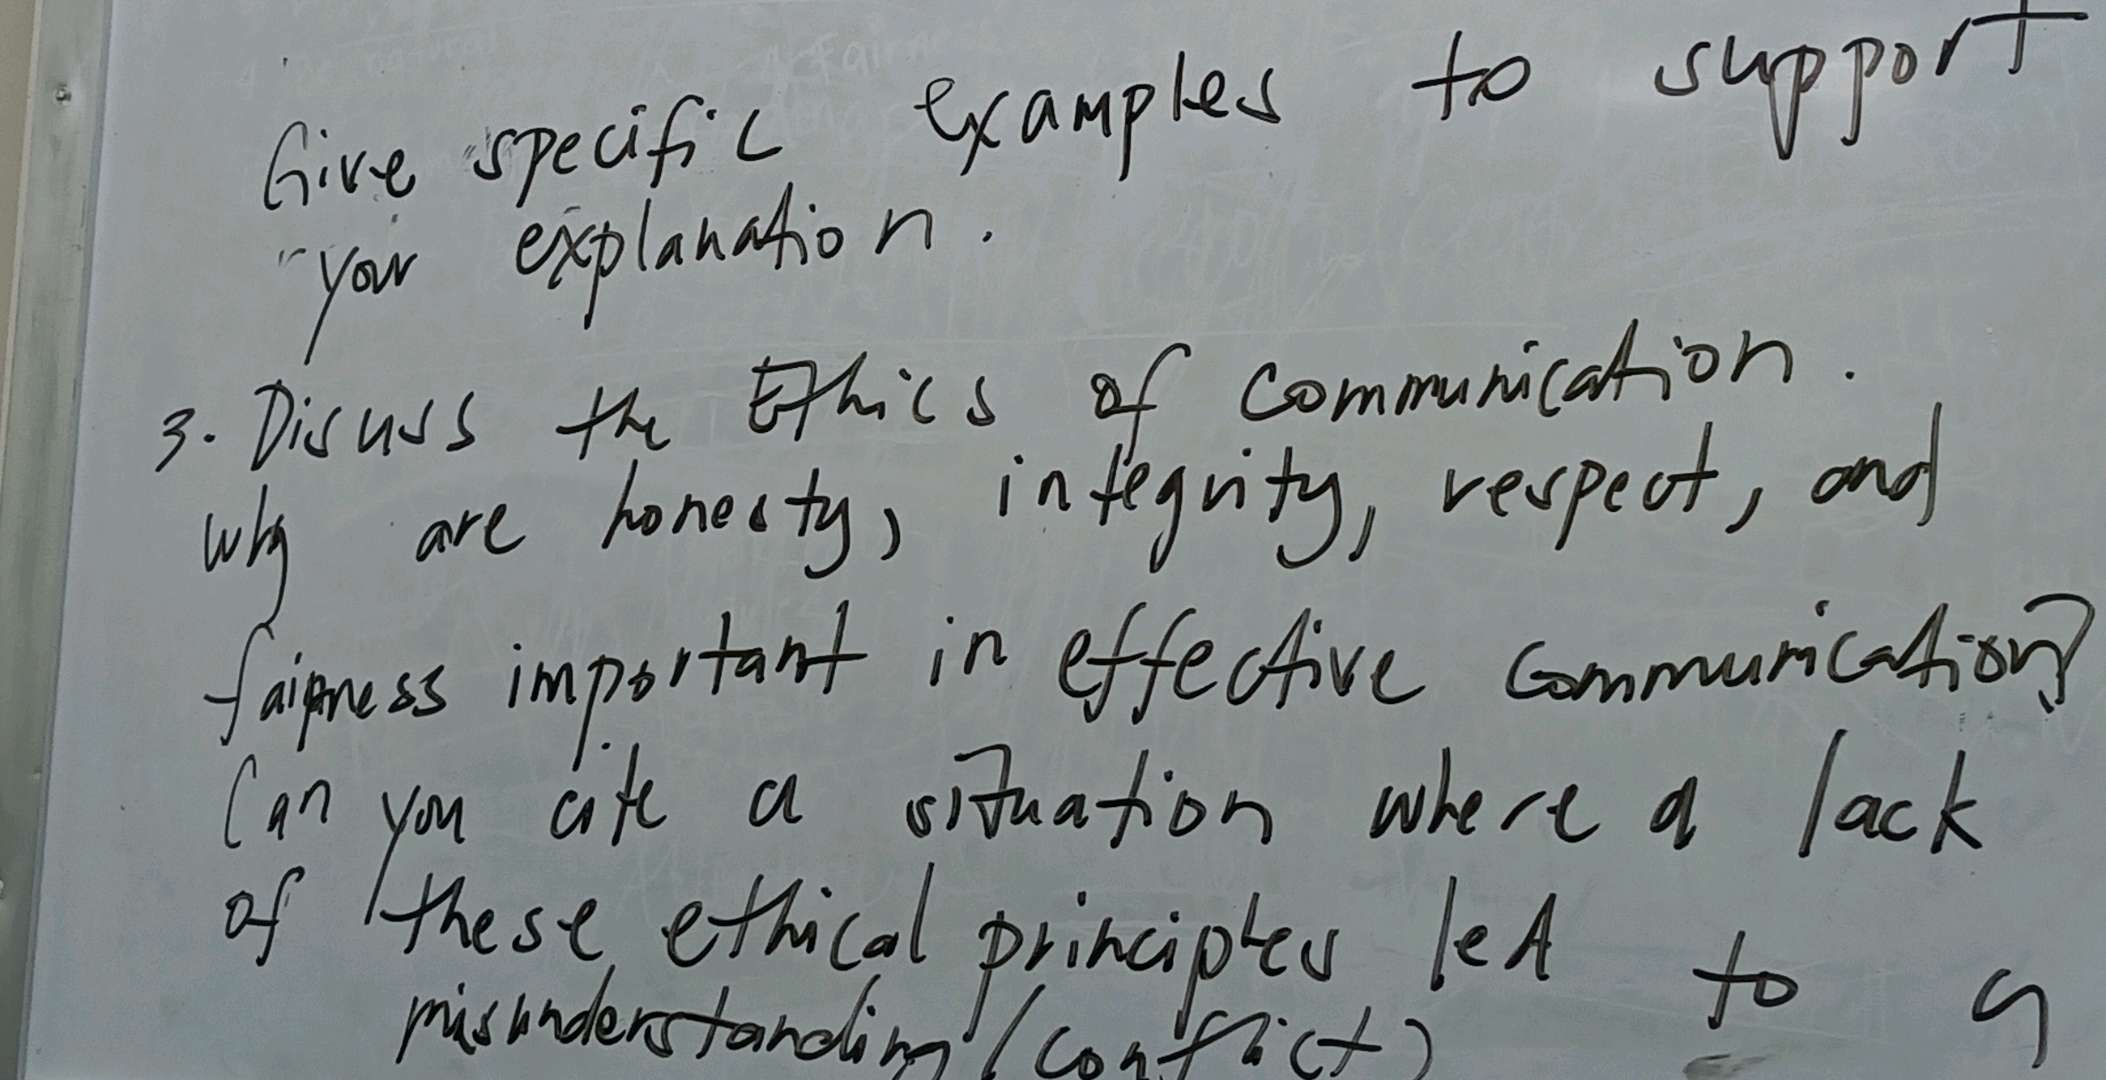 Give specific examples to support
your explanation.
3. Discuss the Ethics of communication.
why are honesty, integrity, respect, and
fairness important in effective communication?
Can you cite a situation where a lack
of these ethical principles led to a
misunderstanding/(conflict)